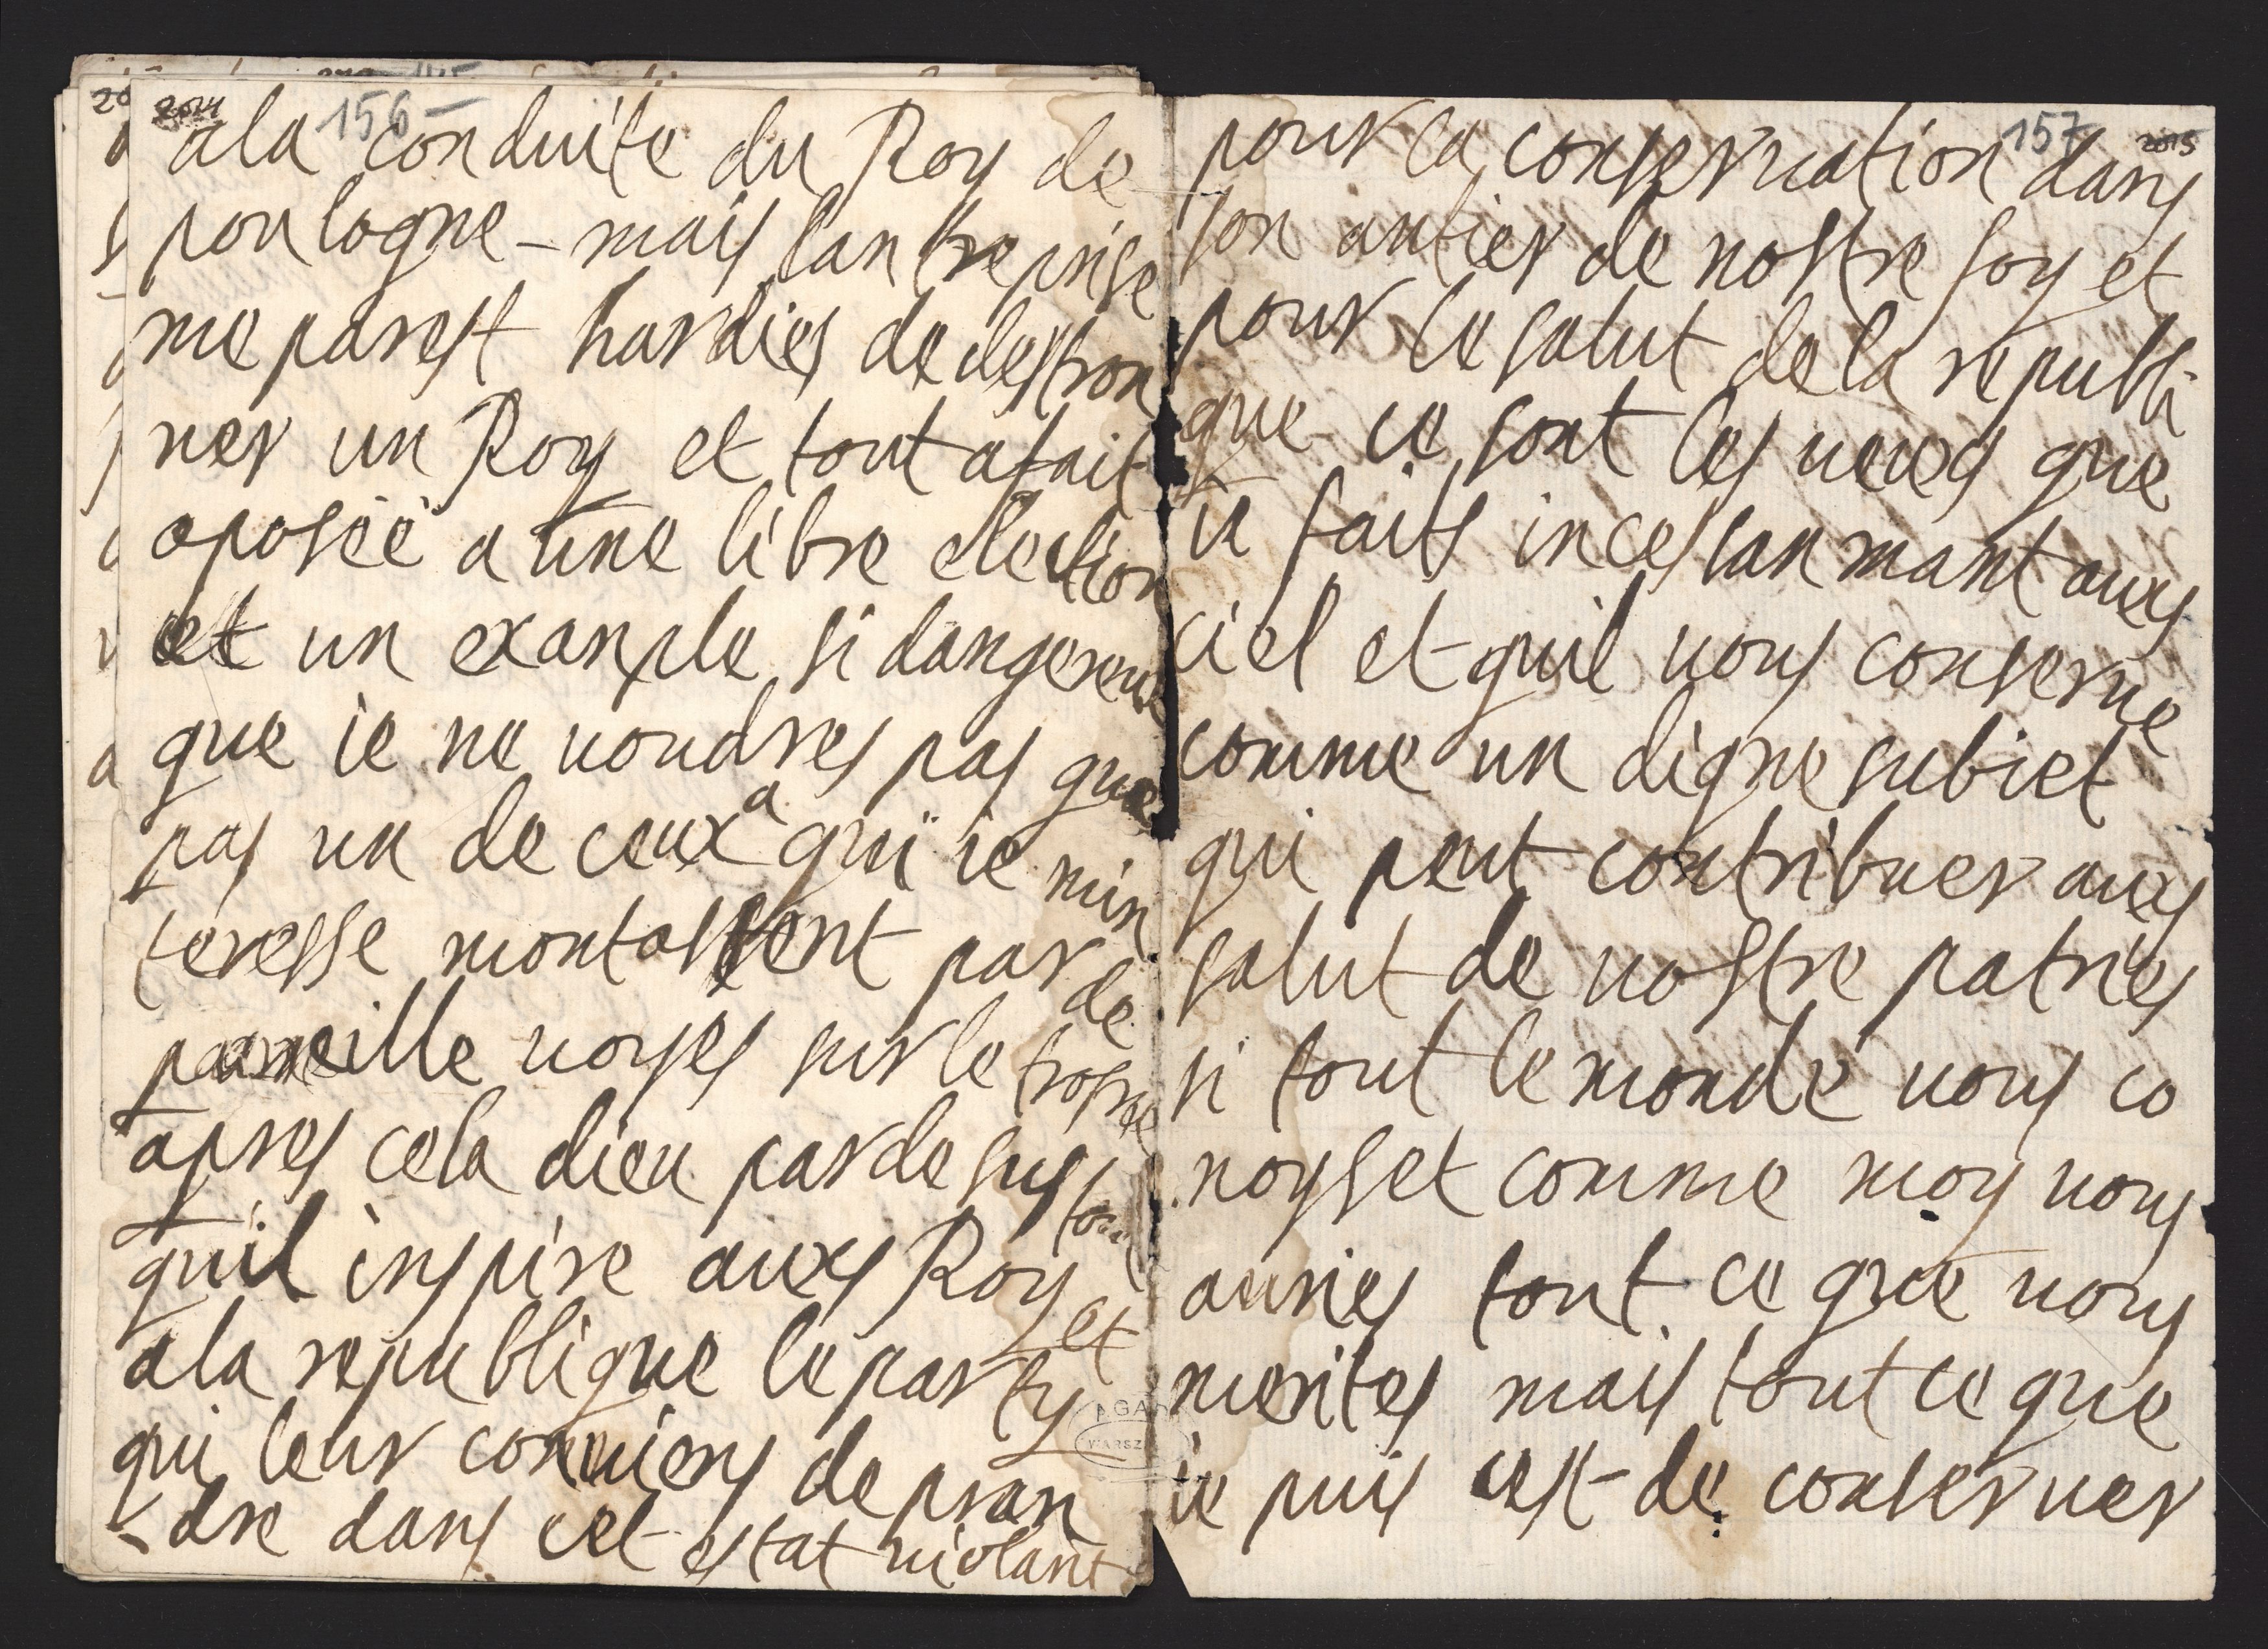 156-
2014
ala conduite du Roy de
poulogne - mais lantreprise
me parest hardies de destron
ner un Roy et tout a fait
oposèe a une libre election
et un exanple si dangereux
que ie ne uoudres pas que
pas un de ceux a qui ie min
teresse montassent par de
pareille uoyes sur le trosne
apres cela dieu pardesus tout
quil inspire auxs Roy et
a la republique le party
qui leur conuiens de pran
-dre dans cet estat uiolant
AGAD
WARSZ
157
2015
pour la conseruation dans
son antier de nostre foy et
pour le salut de la republi-
que ce sont les ueuxs que
ie faits incessanmant auxs
ciel et quil uous conserue
comme un digne subiet
qui peut contribuer auxs
salut de uostre patries
si tout le monde uous co
noysset comme moy uous
auries tout ce que uous
merites mais tout ce que
ie puis cest de conseruer